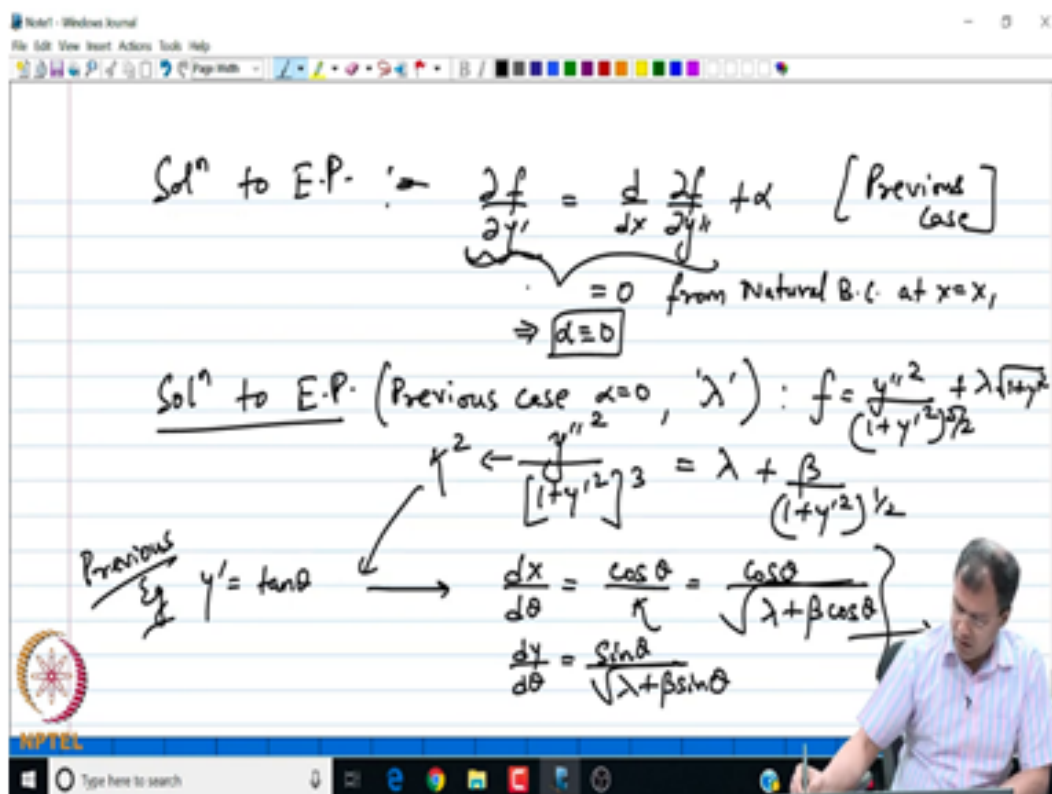 Note1 - Windows Journal
File Edit View Insert Actions Tools Help
Page Width B I
Solⁿ to E.P. :- ∂f/∂y' = d/dx ∂f/∂y'' + α [Previous case]
= 0 from Natural B.C. at x = x₁
⇒ α ≡ 0
Solⁿ to E.P. (Previous case α=0, 'λ') : f = y''²/(1+y'²)^5/2 + λ√1+y'²
κ² ← y''²/[1+y'²]³ = λ + β/(1+y'²)^1/2
Previous Eg y' = tanθ → dx/dθ = cosθ/κ = cosθ/√λ+βcosθ
dy/dθ = sinθ/√λ+βsinθ
NPTEL
Type here to search